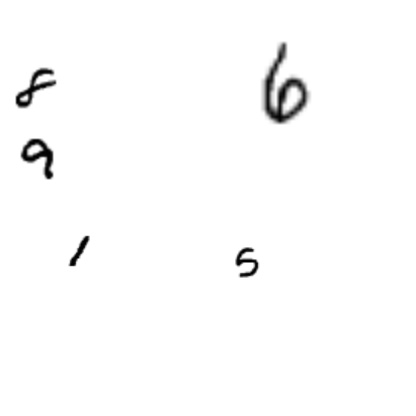 8 6
9
1 5